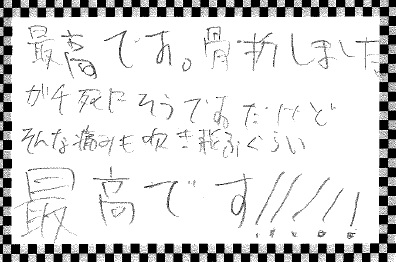 最高です。骨折しました
がチ死にそうであだけど
そんな痛みも吹き飛ぶぐらい
最高です!!!!!